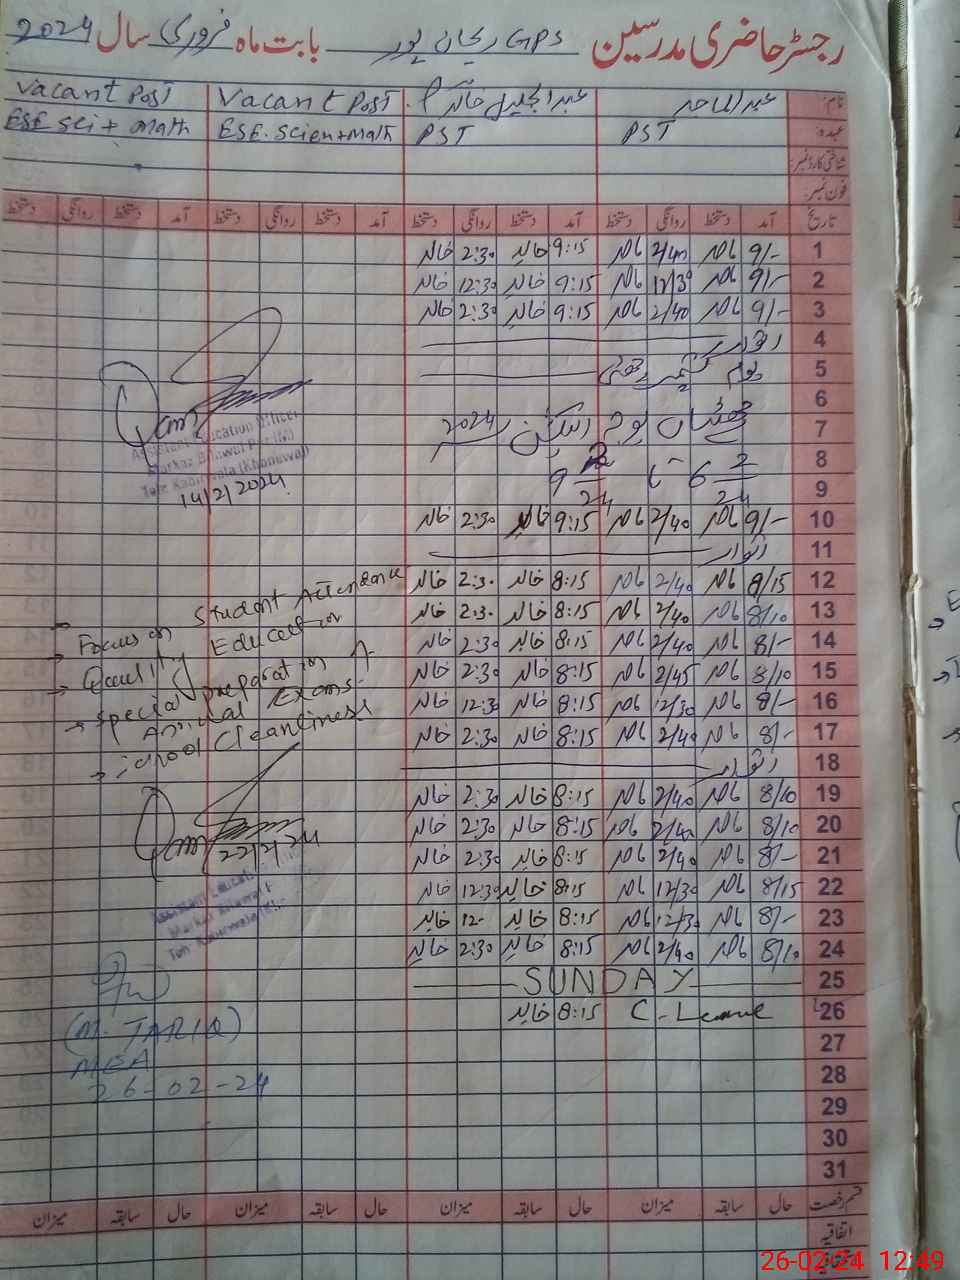 رجسٹر حاضری مدرسین GPS ریحان پور بابت ماہ فروری سال 2024
نام: عبدالماجد عبدالجلیل خالد Vacant Post Vacant Post
عہدہ: PST PST ESE. Scien+Math ESE Sci + Math
شناختی کارڈ نمبر:
فون نمبر:
تاریخ آمد دستخط روانگی دستخط آمد دستخط روانگی دستخط آمد دستخط روانگی دستخط آمد دستخط روانگی دستخط
1 9/- 2/40 9:15 خالد 2:30 خالد
2 9/- 12/30 9:15 خالد 12:30 خالد
3 9/- 2/40 9:15 خالد 2:30 خالد
4 اتوار
5 یوم کشمیر چھٹی
6
7 چھٹیاں بوجہ الیکشن 2024
8 6 2/24 تا 9 2/24
9
10 9/- 2/40 9:15 خالد 2:30 خالد
11 اتوار
12 8/15 2/40 8:15 خالد 2:30 خالد
13 8/10 2/40 8:15 خالد 2:30 خالد
14 8/- 2/40 8:15 خالد 2:30 خالد
15 8/10 2/45 8:15 خالد 2:30 خالد
16 8/- 12/30 8:15 خالد 12:30 خالد
17 8/- 2/40 8:15 خالد 2:30 خالد
18 اتوار
19 8/10 2/40 8:15 خالد 2:30 خالد
20 8/10 2/40 8:15 خالد 2:30 خالد
21 8/- 2/40 8:15 خالد 2:30 خالد
22 8/15 12/30 8:15 خالد 12:30 خالد
23 8/- 12/30 8:15 خالد 12- خالد
24 8/10 2/40 8:15 خالد 2:30 خالد
25 SUNDAY
26 C-Leave 8:15 خالد
27
28
29
30
31
قسم رخصت حال سابقہ میزان حال سابقہ میزان حال سابقہ میزان حال سابقہ میزان
اتفاقیہ
Assistant Education Officer
14/2/2024
Focus on Student Attendance
→ Quality Education
→ Special preparation of
Annual Exams.
→ School Cleanliness
22/2/24
(M. TARIQ)
MEA
26-02-24
26-02-24 12:49